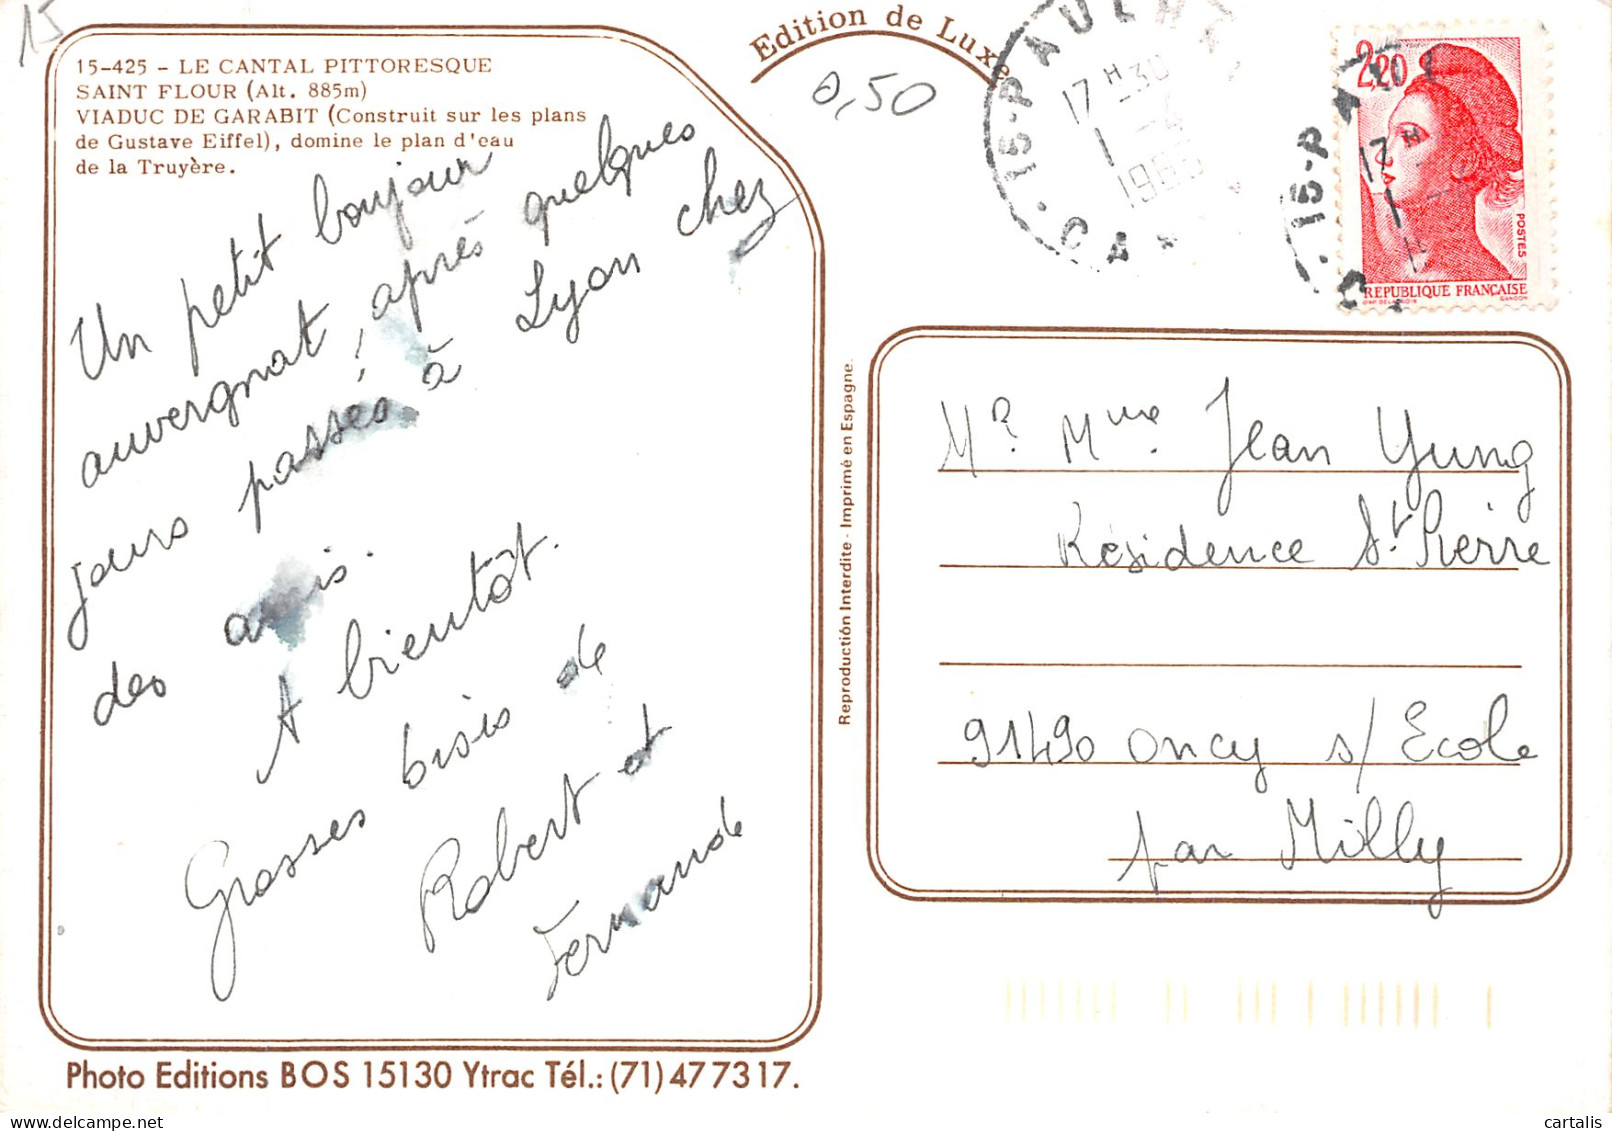 15
15-425 - LE CANTAL PITTORESQUE
SAINT FLOUR (Alt. 885m)
VIADUC DE GARABIT (Construit sur les plans
de Gustave Eiffel), domine le plan d'eau
de la Truyère.
Un petit bonjour
auvergnat, après quelques
jours passés à Lyon chez
des amis.
A bientôt.
Grosses bises de
Robert et
Fernande
Photo Editions BOS 15130 Ytrac Tél.: (71) 47 73 17.
Reproduction Interdite - Imprimé en Espagne
Edition de Luxe
0,50
15-PAULH
17 H 30
1 - 4
CA
2,20
POSTES
REPUBLIQUE FRANÇAISE
GANDON
15-P
17 H
Mr Mme Jean Yung
Résidence St Pierre
91490 Oncy s/ Ecole
par Milly
cartalis
www.delcampe.net